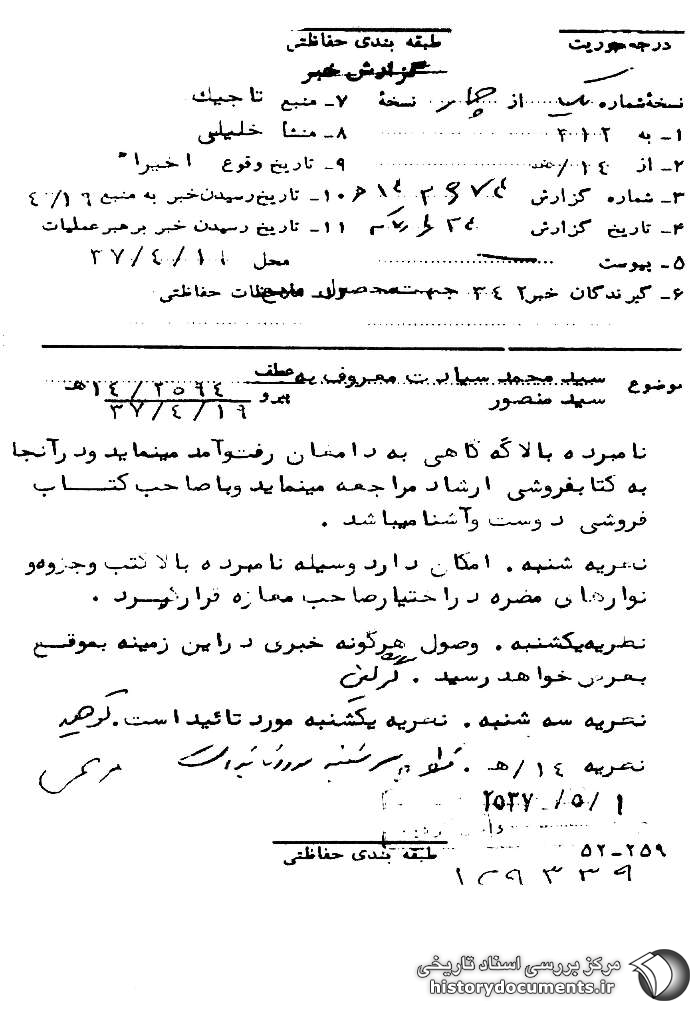 درجه فوریت
طبقه بندی حفاظتی
گزارش خبر
نسخهٔ شماره یک از چهار نسخهٔ
۱- به ۳۱۲
۲- از ۱۴/هـ
۳- شماره گزارش
۴- تاریخ گزارش
۵- پیوست
۶- گیرندگان خبر ۳۴۲ جهت محصول منبع
۷- منبع تاجیک
۸- منشأ خلیلی
۹- تاریخ وقوع اخیراً
۱۰- تاریخ رسیدن خبر به منبع ۴/۱۶
۱۱- تاریخ رسیدن خبر برهبر عملیات
محل ۳۷/۴/۱۱
ملاحظات حفاظتی
موضوع سید محمد سیادت معروف به
سید منصور
عطف
پیرو
۱۴/۲۵۶۴هـ
۳۷/۴/۱۹
نامبرده بالا گه گاهی به دامغان رفت و آمد مینماید و در آنجا
به کتابفروشی ارشاد مراجعه مینماید و با صاحب کتاب
فروشی دوست و آشنا میباشد .
نظریه شنبه . امکان دارد وسیله نامبرده بالا کتب و جزوه و
نوارهای مضره در اختیار صاحب مغازه قرار گیرد .
نظریه یکشنبه . وصول هرگونه خبری در این زمینه بموقع
بعرض خواهد رسید .
نظریه سه شنبه . نظریه یکشنبه مورد تائید است .
نظریه ۱۴/هـ .
۲۵۳۷/۵/۱
طبقه بندی حفاظتی
۵۲-۲۵۹
مرکز بررسی اسناد تاریخی
historydocuments.ir